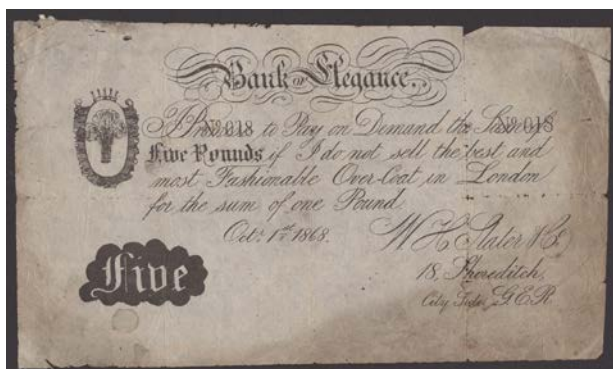 Bank of Elegance.
I Promise to Pay on Demand the Sum of
No. 018
No. 018
Five Pounds if I do not sell the best and
most Fashionable Over-Coat in London
for the sum of one Pound
Octr. 1st 1868.
W H Slater & Co
18, Shoreditch,
City Side, G.E.R
Five